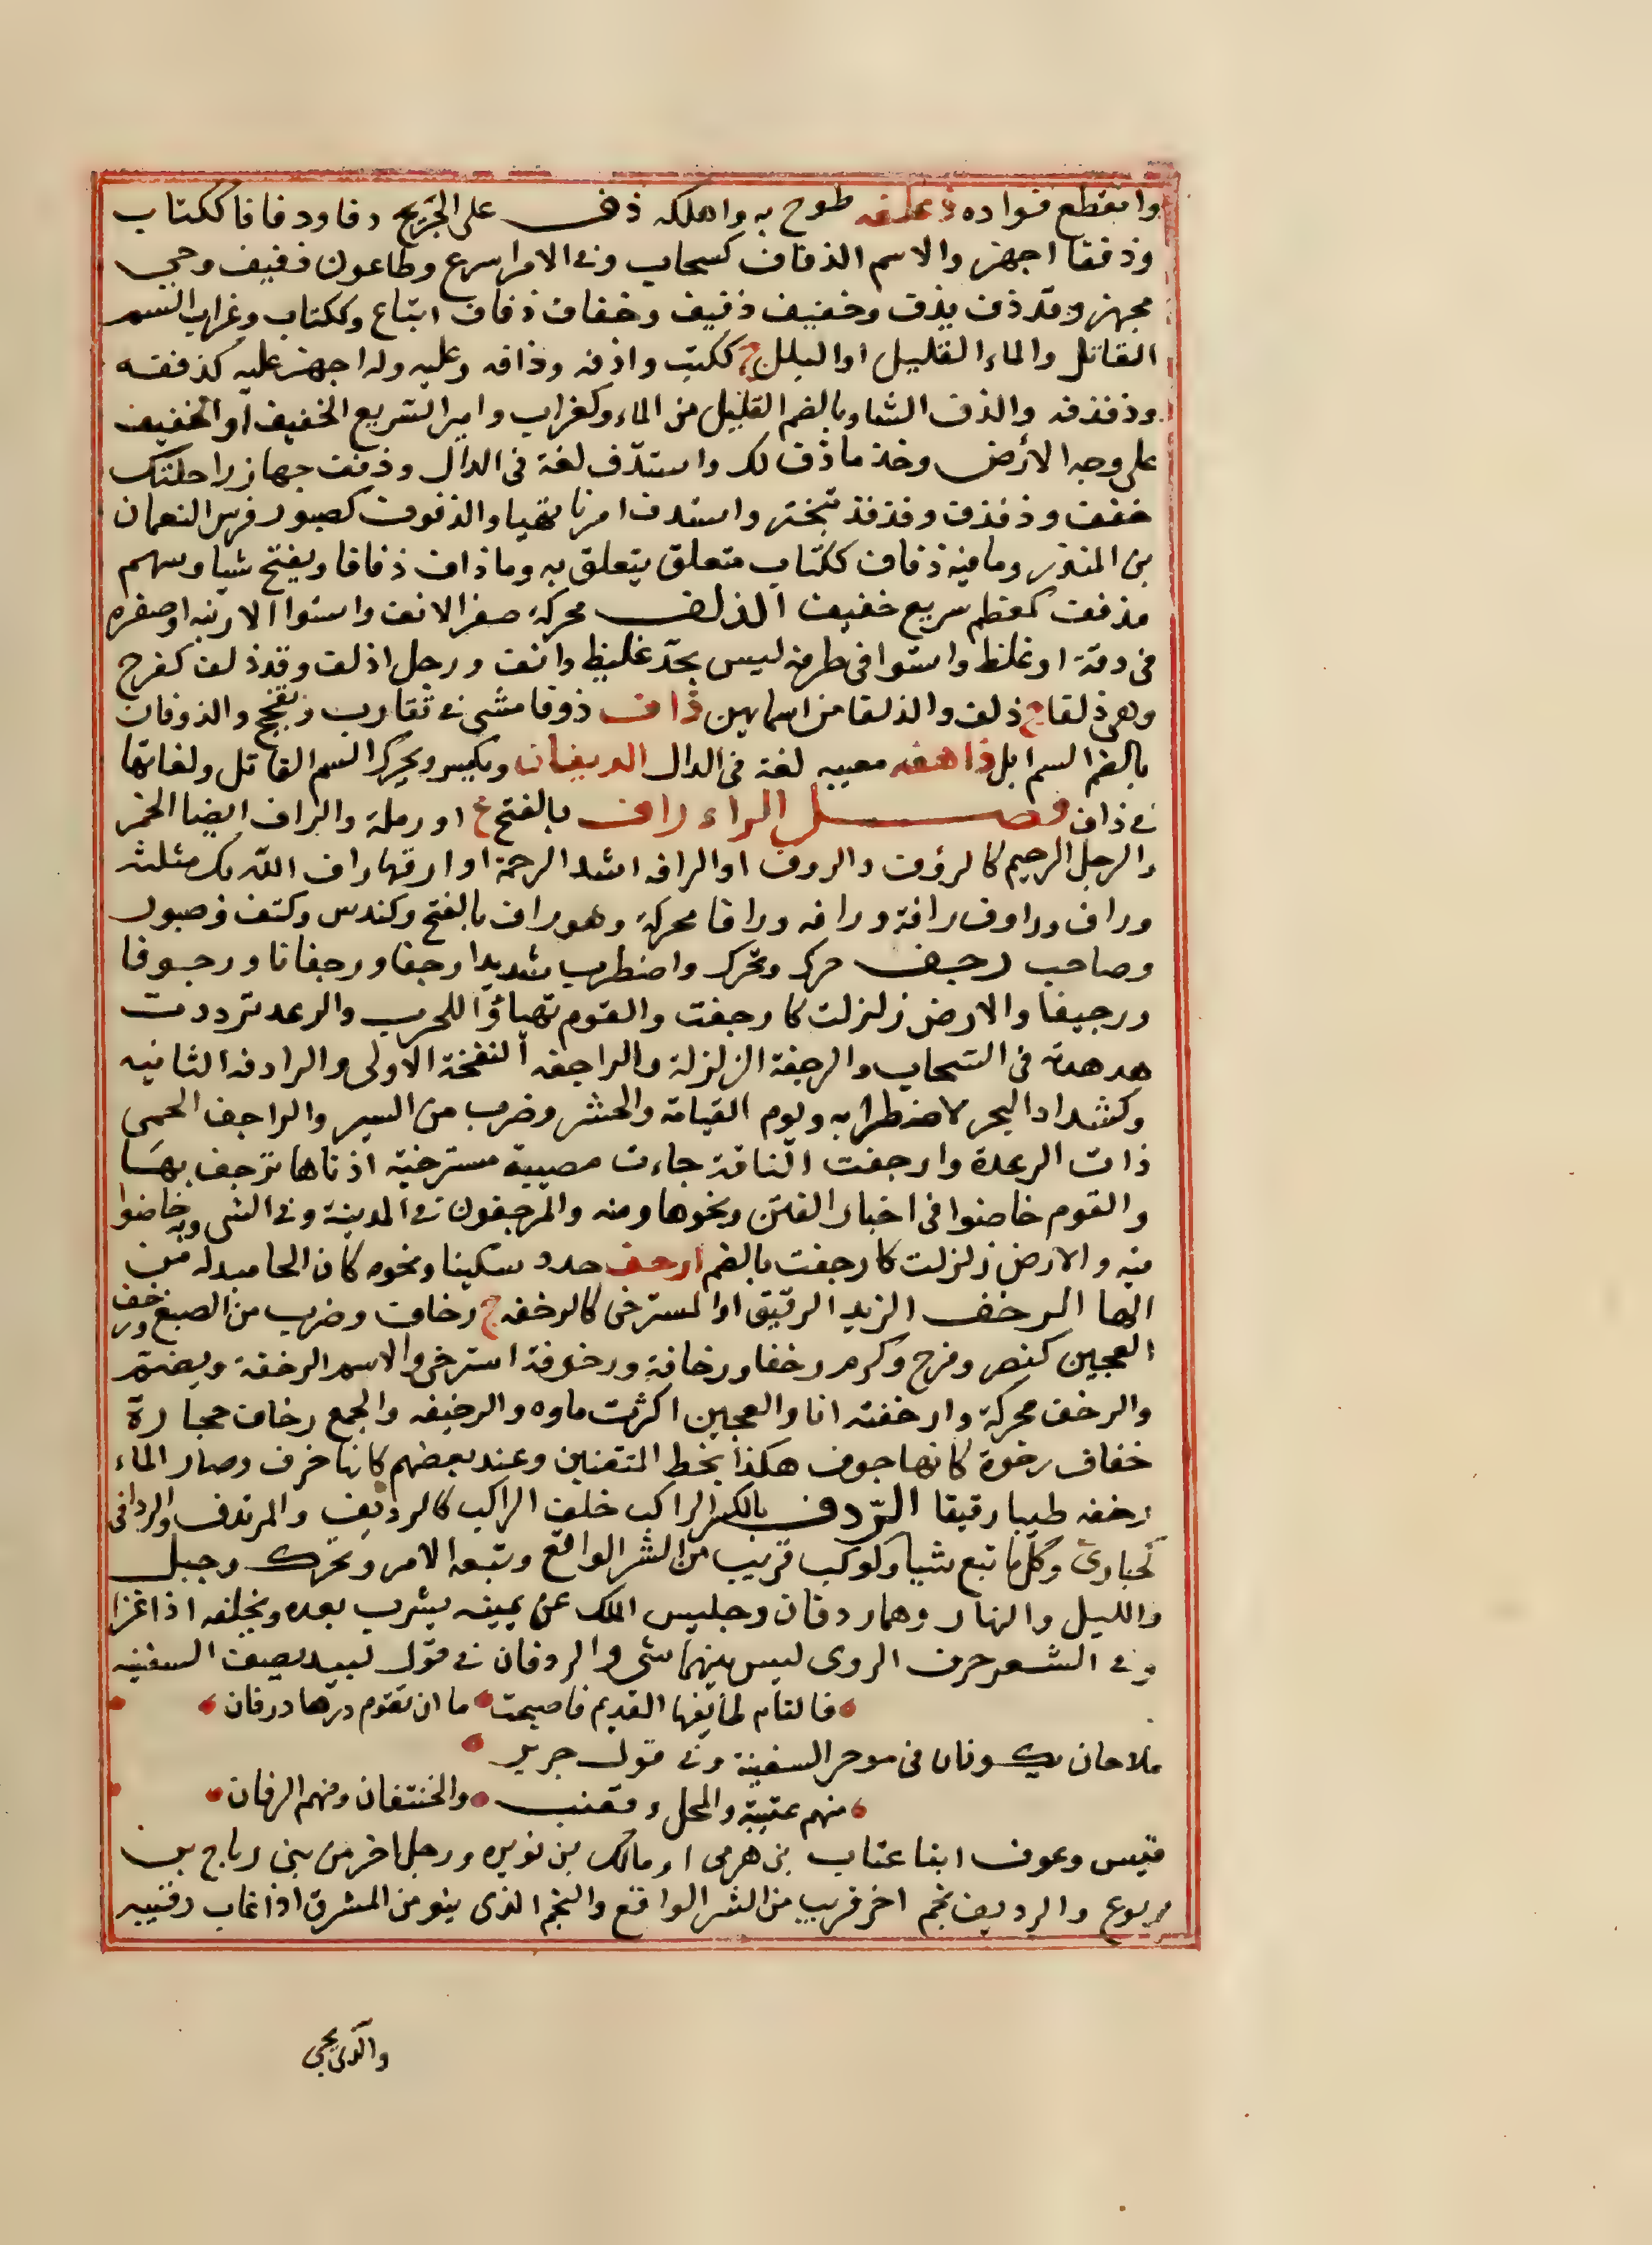 وانقطع فواده ذعلفه طوح به واهلكه ذف على الجريح دفا ودفافا ككتاب
وذففا اجهز والاسم الذفاف كسحاب وفى الامر اسرع وطاعون ذفيف وحى
مجهز وقد ذف يذف وخفيف ذفيف وخفاف ذفاف اتباع وككتاب وغراب السم
القاتل والماء القليل او البلل ج ككتب واذفه وذافه وعليه وله اجهز عليه كذففه
وذفذفه والذف الشاء وبالضم القليل من الماء وكغراب وامير السريع الخفيف او الخفيف
على وجه الأرض وخذ ما ذف لك واستذف لغة فى الدال وذففت جهاز راحلتك
خففت وذفذف وفذفذ تبختر واستذف امرنا تهيا والذفوف كصبور فرس النعمان
بن المنذر وما فيه ذفاف ككتاب متعلق يتعلق به وما ذاف ذفافا ويفتح شيا وسهم
مذفف كمعظم سريع خفيف الذلف محركة صغر الانف واستوا الارنبه او صغره
فى دقة او غلظ واستوا فى طرفه ليس بحد غليظ وانف ورجل اذلف وقد ذلف كفرح
وهى ذلفا ج ذلف والذلفا من اسمايهن ذاف ذوفا مشى فى تقارب وتفحج والذوفان
بالضم السم ابل ذاهفه معييه لغة فى الدال الديفان ويكسر ويحرك السم القاتل ولغاتها
فى ذاف فصل الراء راف بالفتح ع او رملة والراف ايضا الخمر
والرجل الرحيم كالرؤف والروف او الرافه اشد الرحمة او ارقها راف الله بك مثلثه
وراف وراوف رافة ورافه ورافا محركة وهو راف بالفتح وكندس وكتف وصبور
وصاحب رجف حرك وتحرك واضطرب شديدا رجفا ورجفانا ورجوفا
ورجيفا والارض زلزلت كارجفت والقوم تهياؤا للحرب والرعد ترددت
هدهدته فى السحاب والرجفة الزلزلة والراجفه النفخة الاولى والرادفه الثانيه
وكشداد البحر لاضطرابه ويوم القيامة والحشر وضرب من السير والراجف الحمى
ذات الرعدة وارجفت الناقة جاءت مصيية مسترخية اذناها ترجف بها
والقوم خاضوا فى اخبار الفتن ونحوها ومنه والمرجفون فى المدينة وفى الشى وبه خاضوا
فيه والارض زلزلت كارجفت بالضم ارحف حدد سكينا ونحوه كان الحا مبدله من
الها الرخف الزبد الرقيق او المسترخى كالرخفه ج رخاف وضرب من الصبغ ورخف
العجين كنصر وفرح وكرم رخفا ورخافة ورخوفة استرخى والاسم الرخفة ويضم
والرخف محركة وارخفته انا والعجين اكثرت ماوه والرخيفه والجمع رخاف حجارة
خفاف رخوة كانها جوف هكذا بخط المتقنين وعند بعضهم كانها خزف وصار الماء
رخفه طيبا رقيقا الردف بالكسر الراكب خلف الراكب كالرديف والمرتدف والردافى
كحبارى وكل ما تبع شيا وكوكب قريب من النسر الواقع وتبعه الامر وتحرك وجبل
والليل والنهار وهما ردفان وجليس الملك عن يمينه يشرب بعده ويخلفه اذا غزا
وفى الشعر حرف الروى ليس بينهما شى والردفان فى قول لبيد يصف السفينه
فالتام طايفها القديم فاصبحت ما ان تقوم درها دردفان
ملاحان يكونان فى موخر السفينة وفى قول جرير
منهم عتيبة والمحل وقعنب والخنتفان ومنهم الردفان
قيس وعوف ابنا عتاب بن هرمى او مالك بن نويره ورجل اخر من بنى رباح بن
يربوع والرديف نجم اخر قريب من النسر الواقع والنجم الذى ينو من المشرق اذا غاب رقيبه
والذى يجى